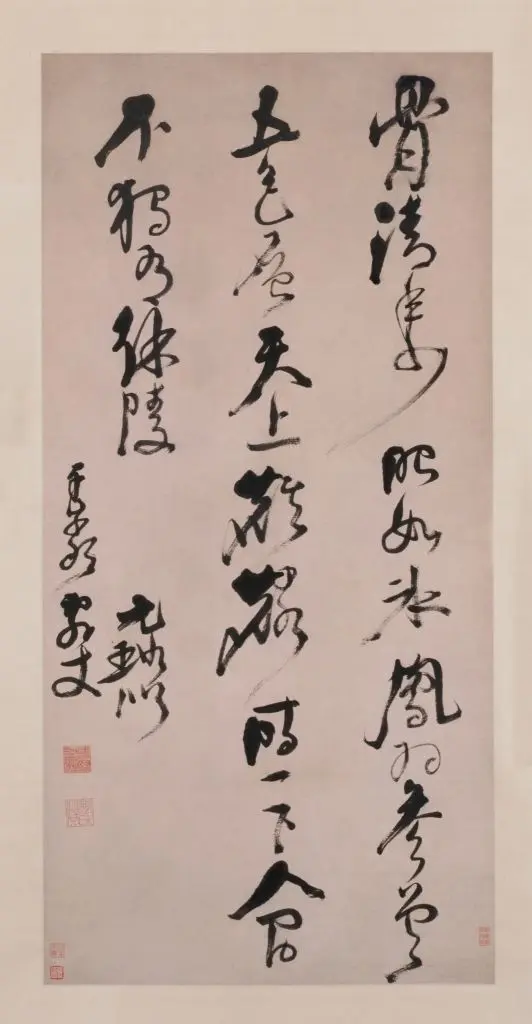 骨清年少眼如冰鳳羽參差
五色層天上麒麟時一下人間
不獨有徐陵
元璐似